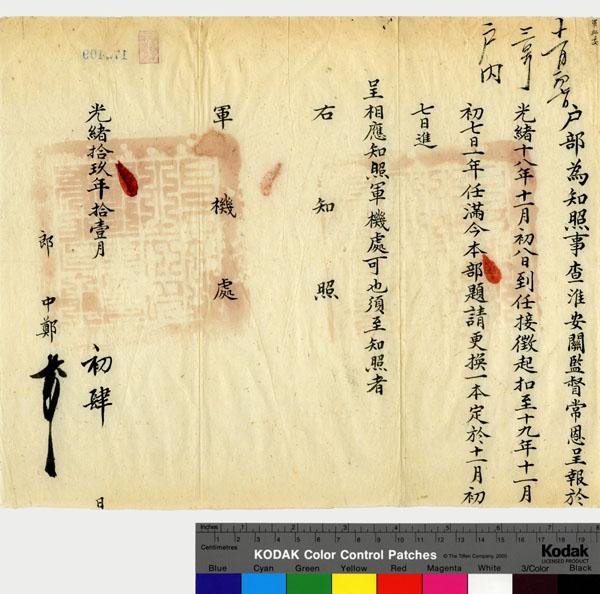 戶部為知照事查淮安關監督常恩呈報於
光緒十八年十一月初八日到任接徵起扣至十九年十一月
初七日一年任滿今本部題請更換一本定於十一月初
七日進
呈相應知照軍機處可也須至知照者
右知照
軍機處
光緒拾玖年拾壹月初肆日
郎中鄭
戶內
Inches 1 2 3 4 5 6 7 8
Centimetres 1 2 3 4 5 6 7 8 9 10 11 12 13 14 15 16 17 18 19
KODAK Color Control Patches
© The Tiffen Company, 2000
Kodak
LICENSED PRODUCT
Blue Cyan Green Yellow Red Magenta White 3/Color Black